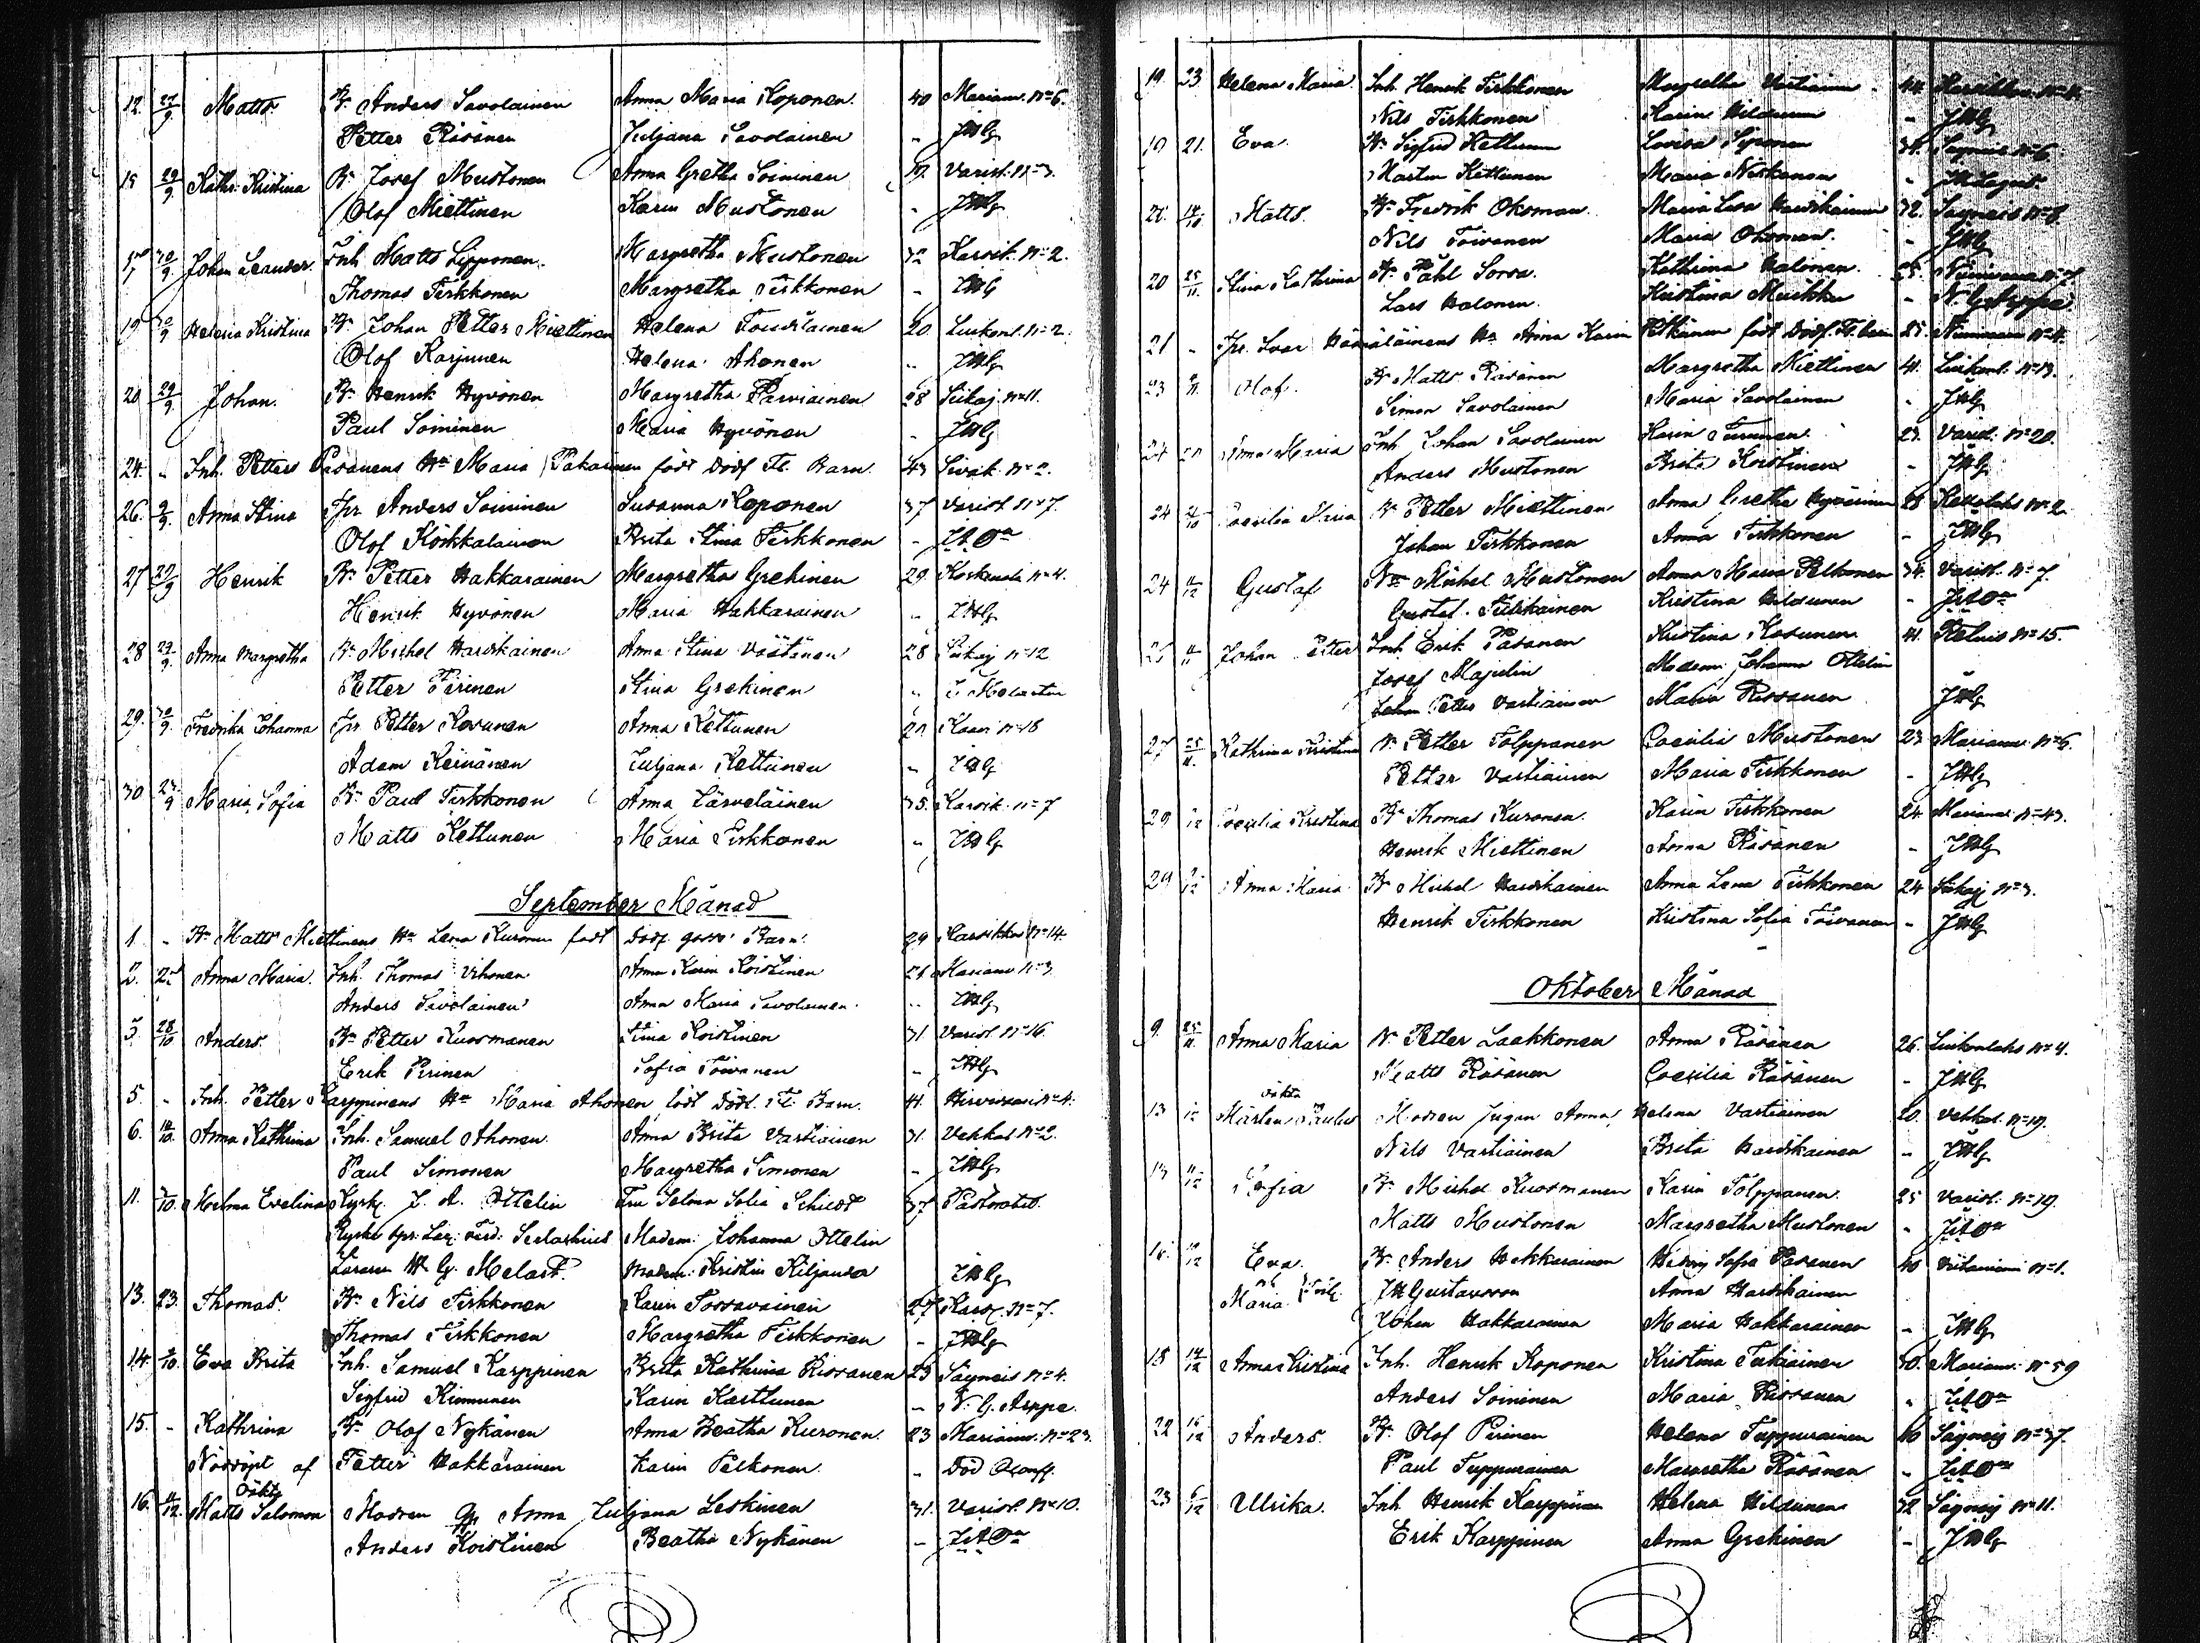 12. 27/9 Matts Bn Anders Savolainen Anna Maria Koponen. 40 Mariam. No 6.
Petter Räsänen Juljana Savolainen „ JHG
15 29/9 Kathr. Kristina Bn Josef Mustonen Anna Gretha Soininen 19 Varisl. No 3.
Olof Miettinen Karin Mustonen „ JHG
17 30/9 Johan Leander. Inh. Matts Lipponen. Margretha Mustonen 32 Karvik. No 2.
Thomas Tirkkonen Margretha Tirkkonen „ JHG
19 30/9 Helena Kristina Bn Johan Petter Miettinen Helena Tourulainen 20. Luikonl. No 2.
Olof Karjunen Helena Ahonen „ JHG
20 29/9 Johan. Bn Henrik Hyvönen Margretha Parviainen 28 Siikaj. No 11.
Paul Soininen Maria Hyvönen „ JHG
24. „ Inh. Petters Pasanens Hu Maria Pakarinen födt dödf. Fl. Barn. 43 Sivak. No 2.
26. 9/9. Anna Stina Spr Anders Soininen Susanna Koponen 37 Varisl. No 7.
Olof Köhkalainen Brita Stina Tirkkonen „
27 29/9 Henrik Bn Petter Hakkarainen Margretha Grekinen 29. No 4.
Henrik Hyvönen Maria Hakkarainen „ JHG
28 29/9. Anna Margretha Bn Michel Harikainen Anna Stina Väätänen 28 Siikaj No 12
Petter Pirinen Stina Grekinen „
29. 30/9. Fredrika Johanna Spr Petter Kosunen Anna Kettunen 21 Kaavi No 18
Adam Keinänen Juljana Kettunen „ JHG
30 23/9 Maria Sofia Bn Paul Tirkkonen Anna Järveläinen 35. Karvik. No 7
Matts Kettunen Maria Tirkkonen „ JHG
September Månad
1. „ Bn Matts Miettinens Hu Lena Kuronen födt dödf. gosse Barn. 29 Karvikko No 14.
2. Anna Maria. Inh. Thomas Vihonen Anna Karin Koistinen 21 Mariam No 3.
Anders Savolainen Anna Maria Savolainen. „ JHG
3. 28/10 Anders. Bn Petter Kuosmanen Stina Koistinen 31 Varisl No 16.
Erik Pirinen Sofia Toivanen „ JHG
5. „ Inh. Petter Karppinens Hu Maria Ahonen födt dödf. Fl. Barn. 41. No 4.
6. 14/10. Anna Kathrina Inh. Samuel Ahonen. Anna Brita Vartiainen 31. Vehkal No 2.
Paul Simonen Margretha Simonen „ JHG
11. Helma Evelina Kyrkh. J. A. Ottelin Fru Selma Sofia Schildt 37 Pastorated.
Madem. Johanna Ottelin
H. G. Melart. Madem. Kristin Kiljander JHG
13. 23. Thomas. Bn Nils Tirkkonen Karin Torvavainen 27 Karv. No 7.
Thomas Tirkkonen Margretha Tirkkonen „ JHG
14. Eva Brita Inh. Samuel Karppinen Brita Kathrina Rissanen 23 Säyneis No 4.
Sigfrid Rimmunen Karin Karttunen „ N. G. Arppe.
15. „ Kathrina Bn Olof Nykänen Anna Beatha Kuronen. 23 Mariam. No 23.
Nöddöpt af Petter Hakkarainen Karin Pelkonen. „ Död
oäkta
16. 4/12. Matts Salomon Modren Anna Juljana Leskinen 31. Varisl. No 10.
Anders Koistinen Beatha Nykänen „
19. 23 Helena Maria. Inh. Henrik Tirkkonen Margretha Vartiainen 44.
Nils Tirkkonen Karin Hildunen „ JHG
19 21. Eva. Bn Sigfrid Kettunen Lovisa Siponen 34. Säyneis No 6.
Martin Kettunen Maria Niskanen „
21. 14/10 Matts. Bn Fredrik Oksman. Maria Lisa Harikainen 32. Säyneis No 8.
Nils Toivanen Maria Oksman. „ JHG
20 25/11. Stina Kathrina Bn Påhl Sorsa. Kathrina Halonen. 25. No 7.
Lars Halonen. Kristina Muikku „ N. G. Arppe.
21 „ Spr. Ivar Hämäläinens Hu Anna Karin Pitkänen födt dödf. Fl. barn 25. No 4.
23 Olof. Bn Matts Räsänen Margretha Miettinen 41. Luikonl. No 13.
Simon Savolainen Maria Savolainen „ JHG
24 Anna Maria Inh Johan Savolainen Karin Turunen. 23. Varisl. No 20.
Anders Mustonen Brita Koistinen „ JHG
24 Caecilia Maria Bn Petter Miettinen Anna Gretha Hyvärinen 28 No 2.
Johan Tirkkonen Anna Tirkkonen „ JHG
24 11/12 Gustaf Bn Michel Mustonen Anna Maria Pelkonen 34. Varisl. No 7.
Gustaf. Kristina Hildunen „
25 Johan Petter Inh Erik Pasanen Kristina Kosunen 41. No 15.
Josef Majelin Madem. Johanna Ottelin „
Johan Petter Vartiainen Maria Rissanen JHG
27 25/11. Kathrina Kristina Bn Petter Tolppanen Caecilia Mustonen 23 Mariam. No 6.
Petter Vartiainen Maria Tirkkonen „ JHG
29 Caecilia Kristina Bn Thomas Kuronen. Karin Tirkkonen 24 Mariam No 43.
Henrik Miettinen Anna Räsänen „ JHG
29 Anna Maria. Bn Michel Harikainen Anna Lena Tirkkonen 24 Siikaj No 3.
Henrik Tirkkonen Kristina Sofia Toivanen „ JHG
Oktober Månad
9. 25/11. Anna Maria Bn Petter Laakkonen Anna Räsänen 26. Luikonlaks No 4.
Matts Räsänen Caecilia Räsänen „ JHG
oäkta
13 Mårten Paulus Modren Jugan Anna Helena Vartiainen 20. Vehkal. No 19.
Nils Vartiainen Brita Harikainen „ JHG
13 11/12 Sofia Bn Michel Kuosmanen Karin Tolppanen. 25 Varisl. No 19.
Matts Mustonen Margretha Mustonen „
16. Eva. Bn Anders Hakkarainen Hedvig Sofia Pasanen 40 No 1.
och Maria JH Gustavsson Anna Harikainen
Johan Hakkarainen Maria Hakkarainen „ JHG
18 14/12 Anna Kristina Inh. Henrik Koponen Kristina Tirkiainen 30. Mariam. No 59
Anders Soininen Maria Rissanen „
22 16/12 Anders. Bn Olof Pirinen Helena Tuppurainen 46 Säyneis No 37.
Paul Tuppurainen Margretha Räsänen „
23 6/12 Ulrika. Inh Henrik Karppinen Helena Hildunen 32 Säyneis No 11.
Erik Karppinen Anna Grekinen „ JHG